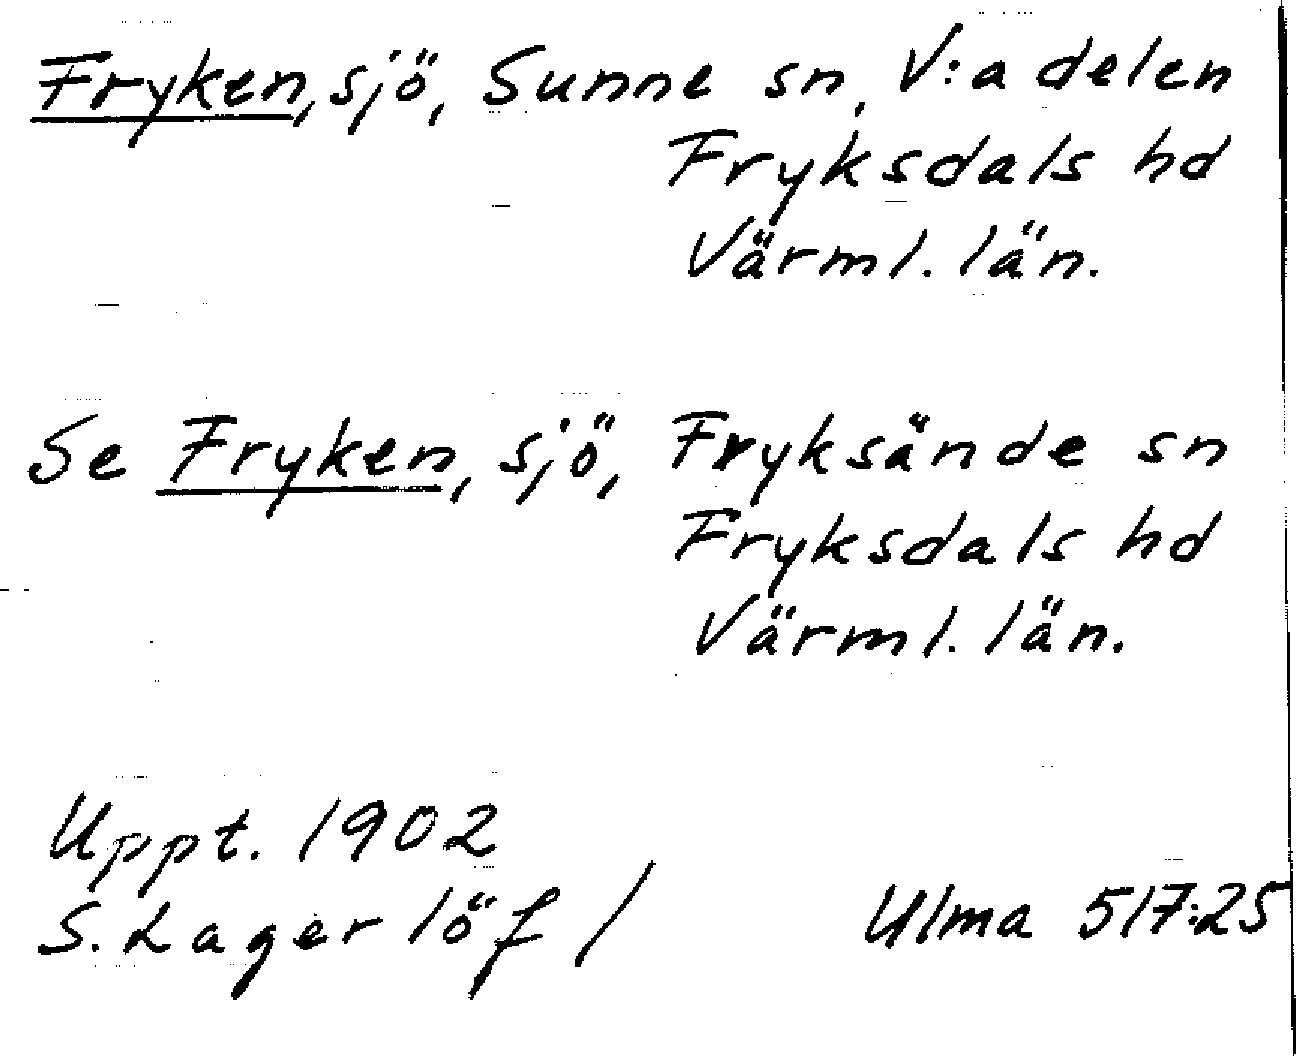 Fryken, sjö, Sunne sn, V:a delen
Fryksdals hd
Värml. län.
Se Fryken, sjö, Fryksände sn
Fryksdals hd
Värml. län.
Uppt. 1902
S. Lagerlöf / Ulma 517:25